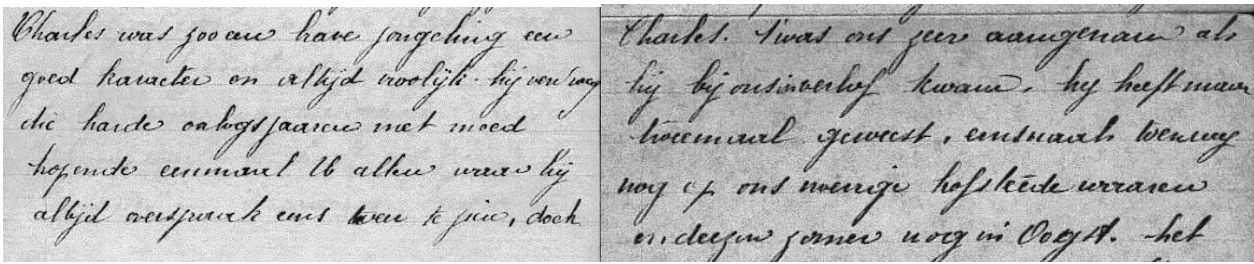 Charles was zoo een brave jongeling een
goed karacter en altijd vroolijk. hij verdroeg
die harde oorlogsjaaren met moed
hopende eenmaal allen waar hij
altijd oversprak eens weer te zien, doch
Charles. 't was ons zeer aangenaam als
hij bij ons in verlof kwam, hij heeft maar
tweemaal geweest, eensmaals toen wij
nog op ons hofstede waaren
en deezen zomer nog in Oogst. het